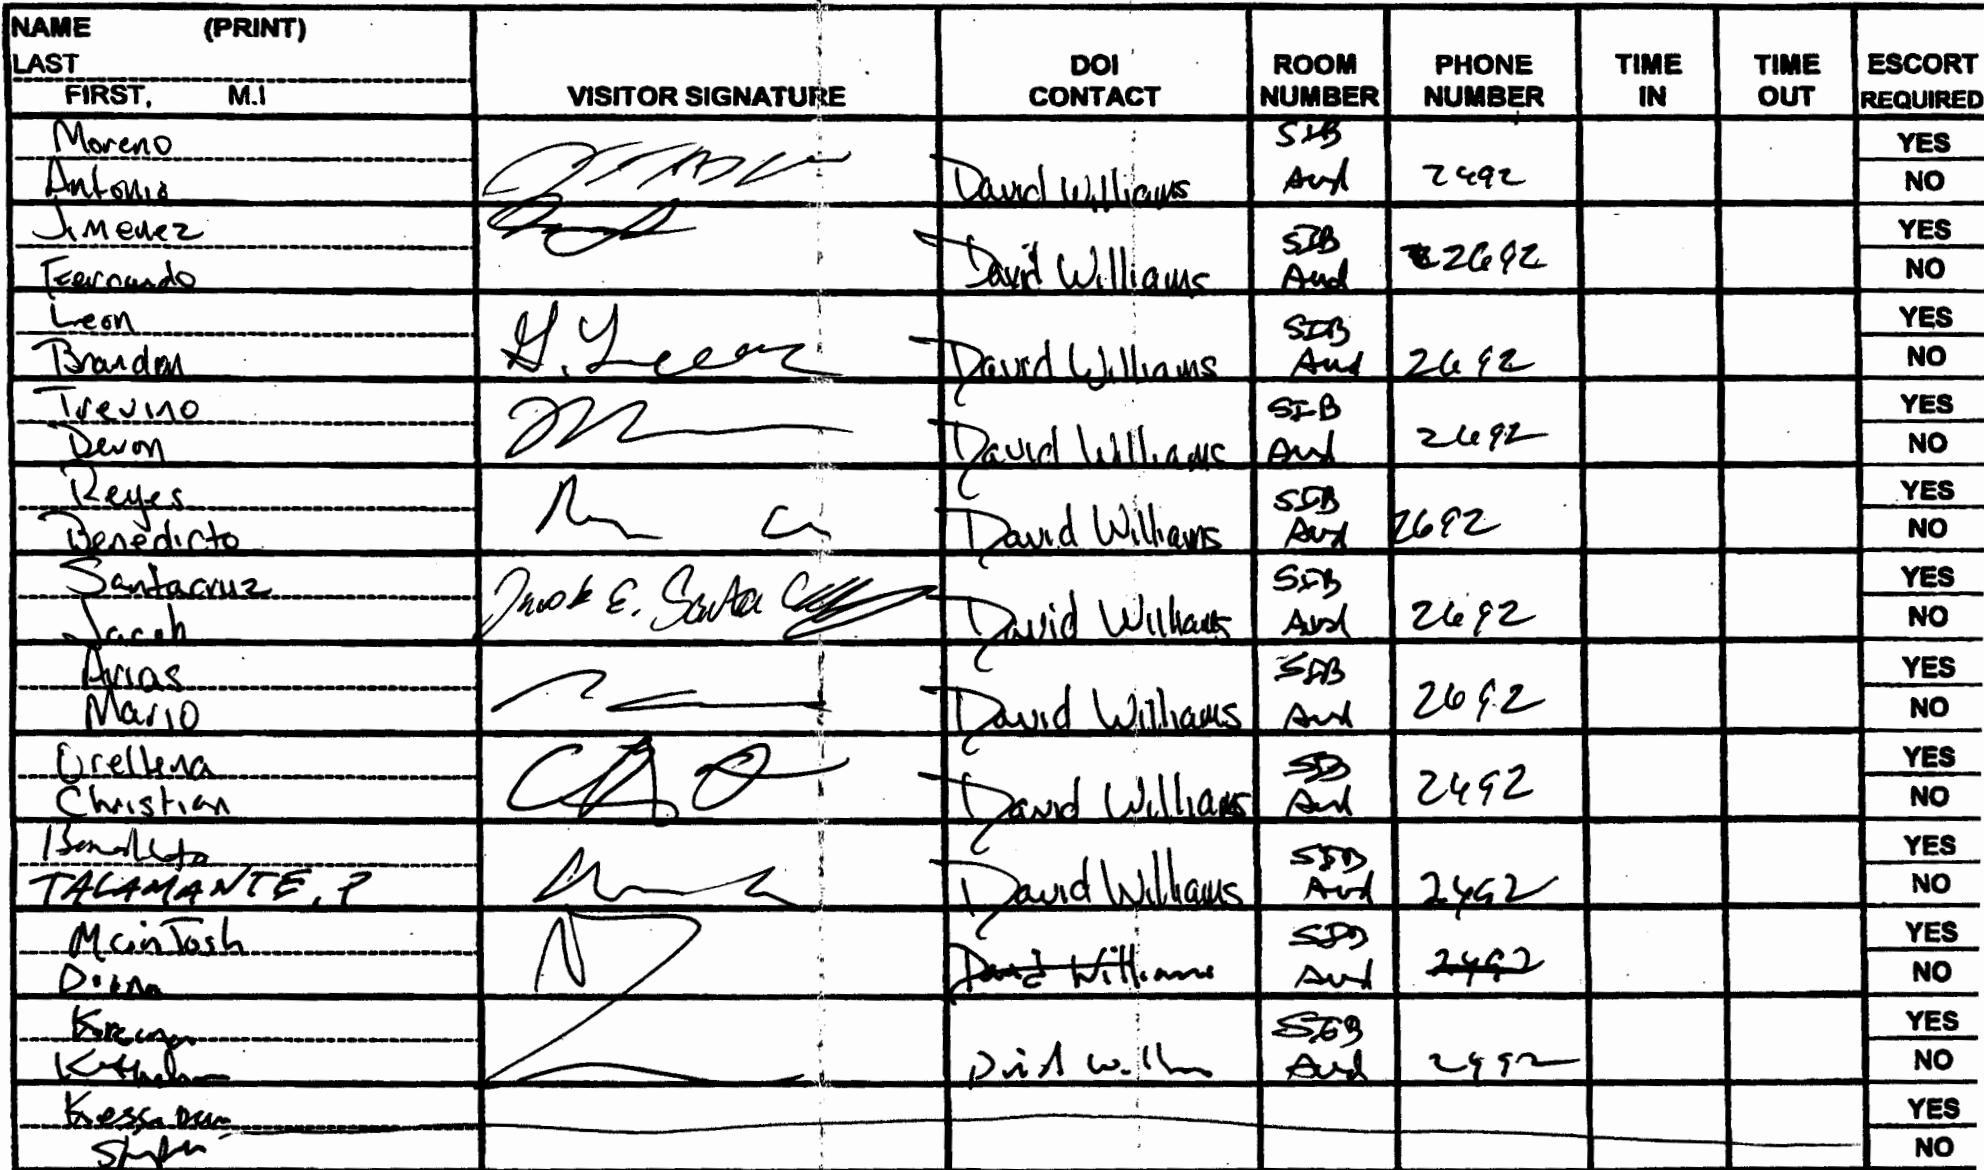 NAME (PRINT)
LAST
FIRST, M.I
VISITOR SIGNATURE
DOI CONTACT
ROOM NUMBER
PHONE NUMBER
TIME IN
TIME OUT
ESCORT REQUIRED
Moreno
Antonio
David Williams
SIB
Aud
2492
YES
NO
Jimenez
Fernando
David Williams
SIB
Aud
2692
YES
NO
Leon
Brandon
G. Leon
David Williams
SIB
Aud
2692
YES
NO
Trevino
Devon
David Williams
SIB
Aud
2692
YES
NO
Reyes
Benedicto
David Williams
SIB
Aud
2692
YES
NO
Santacruz
Jacob
Jacob E. Santa Cruz
David Williams
SIB
Aud
2692
YES
NO
Arias
Mario
David Williams
SIB
Aud
2692
YES
NO
Orellena
Christian
David Williams
SIB
Aud
2492
YES
NO
TALAMANTE, P
David Williams
SIB
Aud
2492
YES
NO
McinTosh
David Williams
SIB
Aud
2492
YES
NO
SIB
Aud
2492
YES
NO
YES
NO